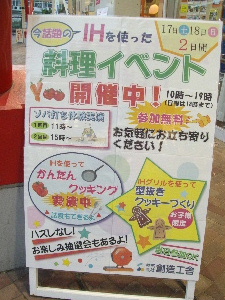 今話題の
IHを使った
17日土18日日
2日間
料理イベント
開催中!
10時〜19時
ソバ打ち体験実演
11時〜
15時〜
参加無料!
お気軽にお立ち寄り
ください!
IHを使って
かんたん
クッキング
実演中
試食もできるよ
IHグリルを使って
型抜き
クッキーづくり
お子様
限定
ハズレなし!
お楽しみ抽選会もあるよ!
創造工舎